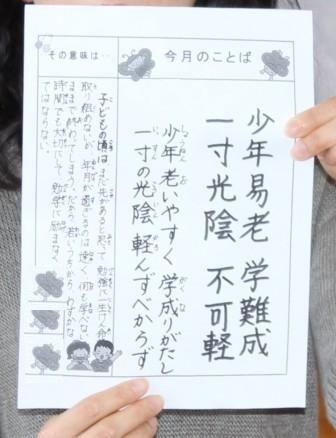 今月のことば
少年易老 学難成
一寸光陰 不可軽
少年老いやすく 学成りがたし
一寸の光陰 軽んずべからず
その意味は…
子どもの頃はまだ先があると思って勉強に一生けん命
取り組めないが、年月が過ぎるのは速く、何も学べない
ままで終わってしまう。だから若いうちから、わずかな
時間でも大切にして、勉学に励まなく
てはならない。